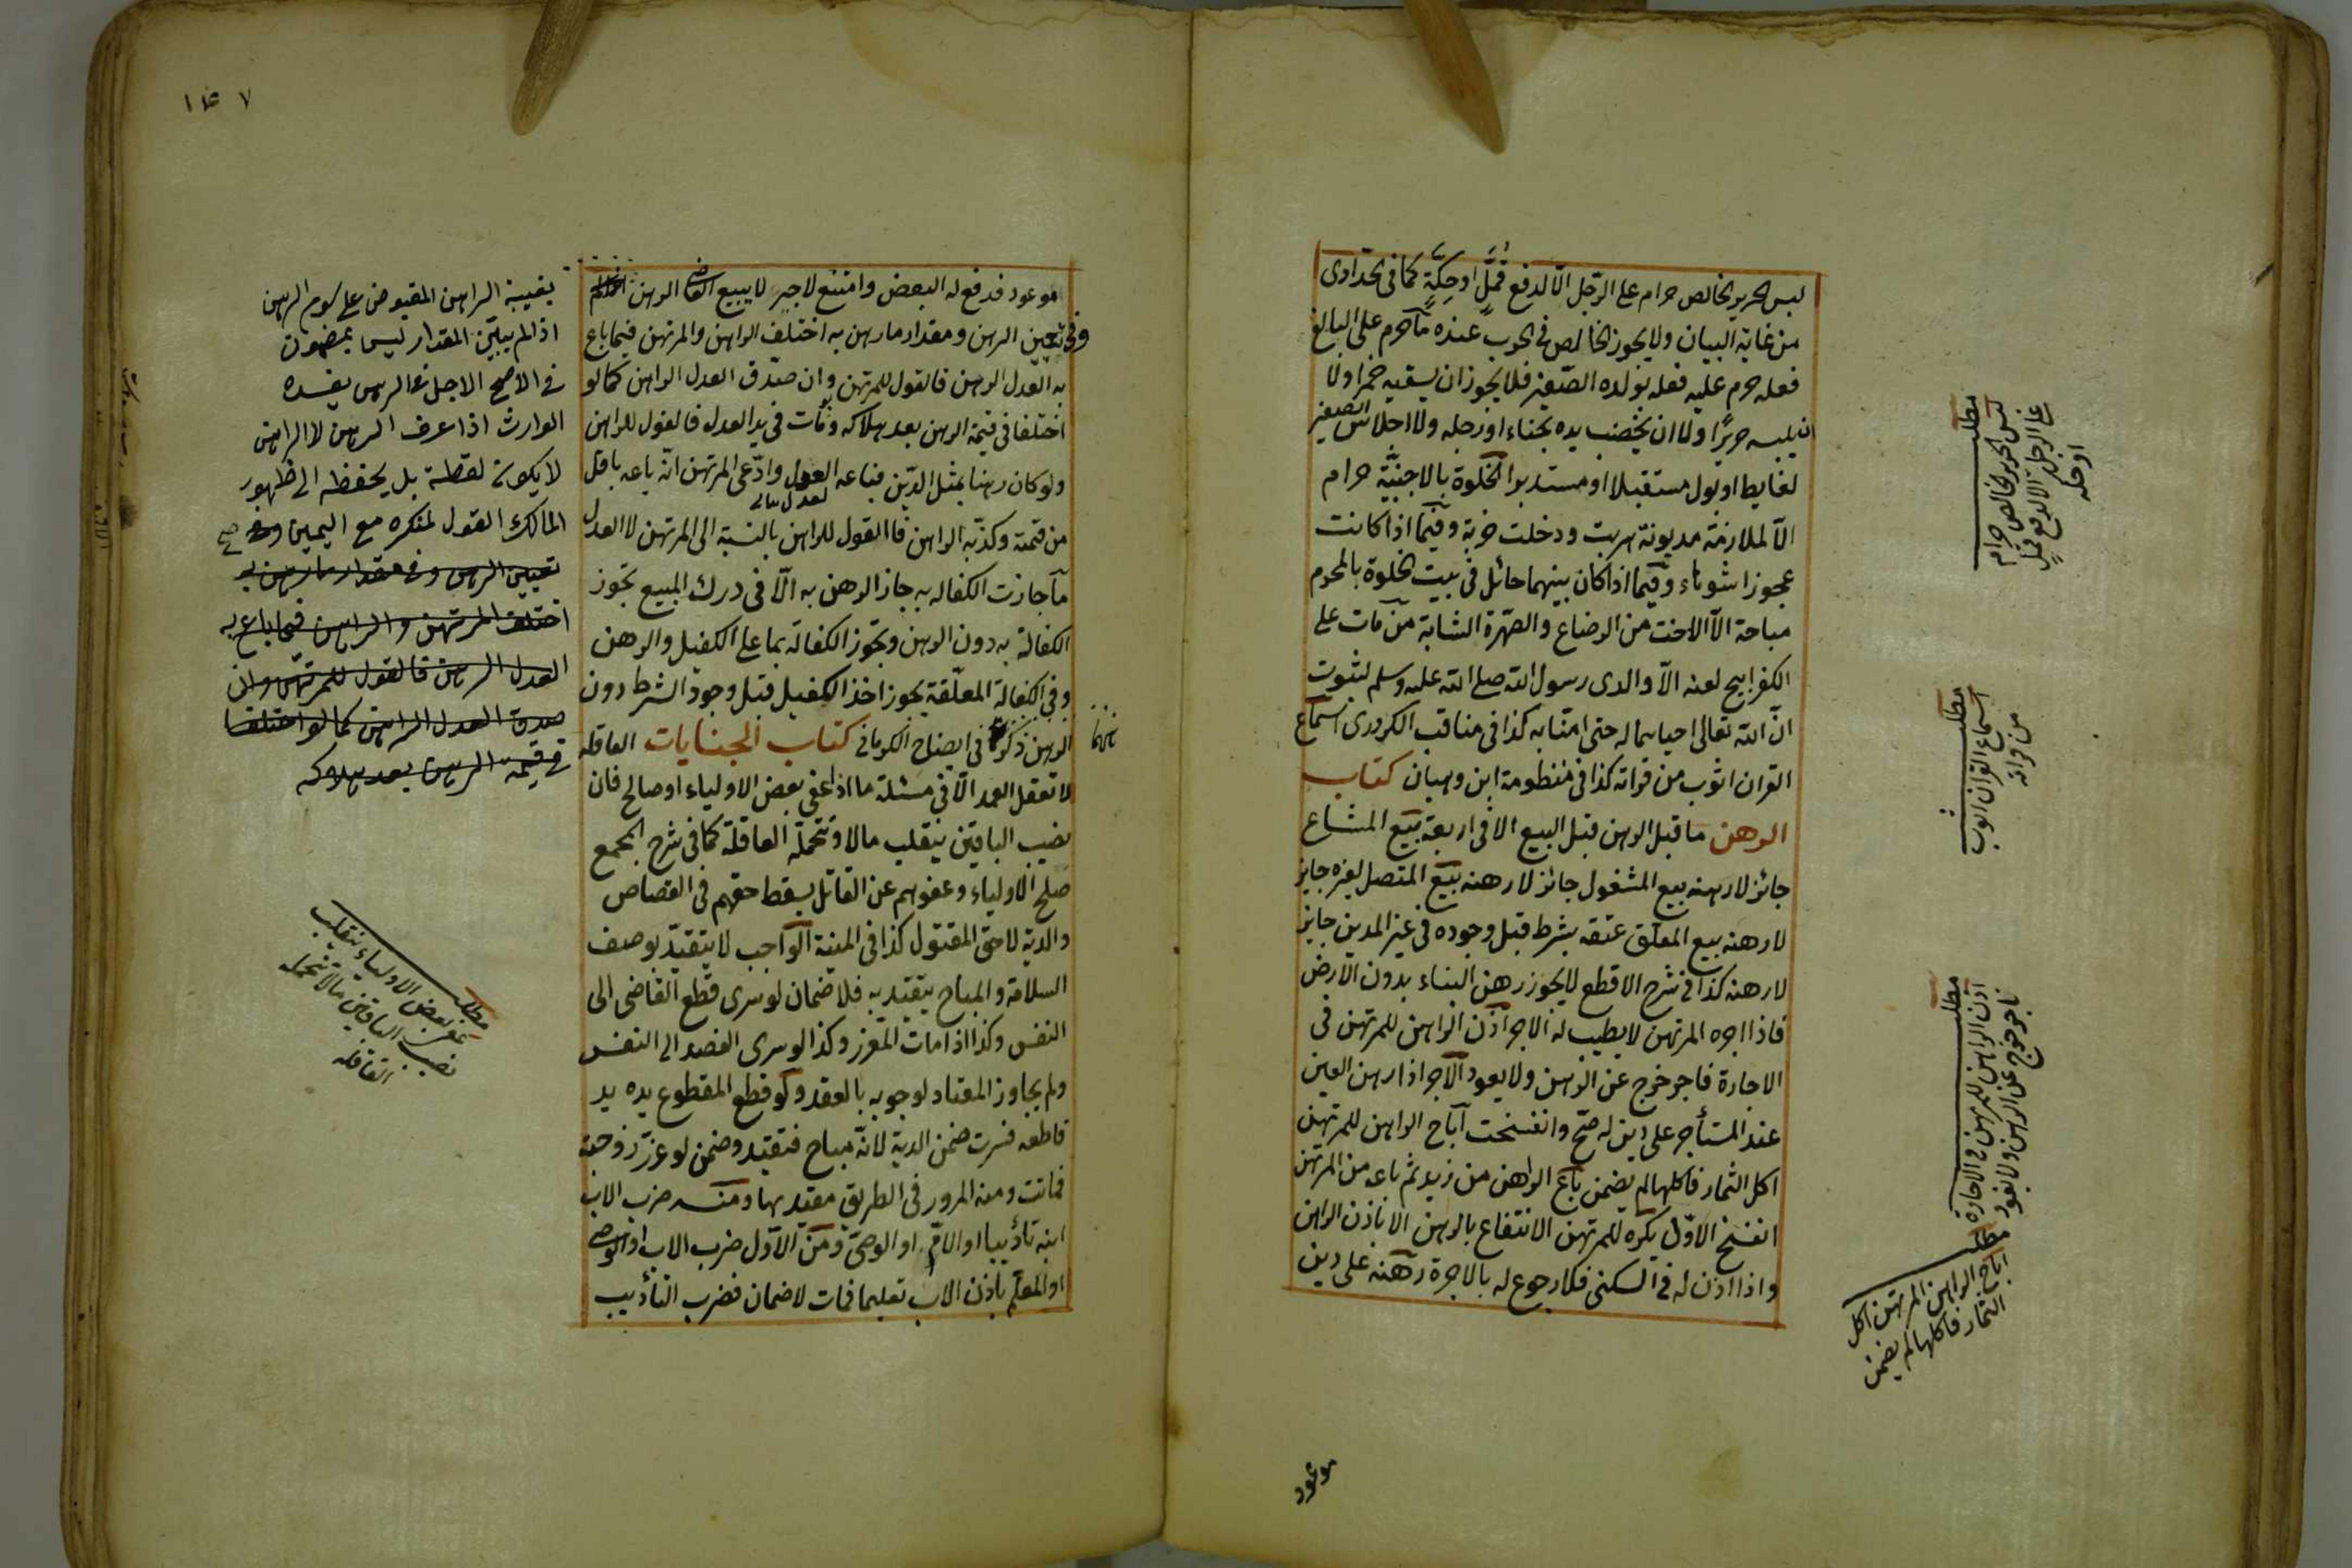 لبس الحرير الخالص حرام على الرجل الّا لدفع قملٍ او حِكَّةٍ كما فى الحدادى
من غاية البيان ولا يجوز الخالص فى الحرب عنده ما حرم على البالغ
فعله حرم عليه فعله بولده الصّغير فلا يجوز ان يسقيه خمرا ولا
ان يلبسه حريرًا ولا ان يخضب يده بحناء او رجله ولا اجلاس الصغير
لغايط او بول مستقبلا او مستدبرا الخلوة بالاجنبيّة حرام
الّا لملازمة مديونة هربت ودخلت خربة وفيما اذا كانت
عجوزا شوهاء وفيما اذا كان بينهما حائل فى بيت الخلوة بالمحرم
مباحة الّا الاخت من الرضاع والصّهرة الشابة من مات على
الكفر ابيح لعنه الّا والدى رسول الله صلى الله عليه وسلم لثبوت
انّ الله تعالى احياهما له حتى امنّا به كذا فى مناقب الكردرى اسماع
القران اثوب من قراته كذا فى منظومة ابن وهبان كتاب
الرهن ما قبل الرهن قبل البيع الا فى اربعة بيع المشاع
جائز لا رهنه بيع المشغول جائز لا رهنه بيع المتصل بغيره جايز
لا رهنه بيع المعلّق عتقه بشرط قبل وجوده فى غير المدين جايز
لا رهنه كذا فى شرح الاقطع لا يجوز رهن البناء بدون الارض
فاذا اجره المرتهن لا يطيب له الاجر اذن الراهن للمرتهن فى
الاجارة فاجر خرج عن الرهن ولا يعود الآجر اذا رهن العين
عند المستأجر على دين له صحّ وانفسخت اباح الراهن للمرتهن
اكل الثمار فاكلها لم يضمن باع الراهن من زيد ثم باعه من المرتهن
انفسخ الاوّل يكره للمرتهن الانتفاع بالرهن الا باذن الراهن
واذا اذن له فى السكنى فلا رجوع له بالاجرة رهنه على دين
موعود
مطلب
لبس الحرير الخالص حرام
على الرجل الا لدفع قمل
او حكه
مطلب
اسماع القران اثوب
من قراته
مطلب
اذن الراهن للمرتهن فى الاجارة
فاجر خرج عن الرهن ولا يعود
مطلب
اباح الراهن المرتهن اكل
الثمار فاكلها لم يضمن
موعود فدفع له البعض وامتنع لا جبر لا يبيع القاضى الرهن
وفى تعيين الرهن ومقدار ما رهن به اختلف الراهن والمرتهن فيما باع
به العدل الرهن فالقول للمرتهن وان صدّق العدل الراهن كما لو
اختلفا فى قيمة الرهن بعد هلاكه ومات فى يد العدل فالقول للراهن
ولو كان رهنا بمثل الدّين فباعه العدل وادّعى المرتهن انّه باعه باقل
من قيمته وكذّبه الراهن فالقول للراهن بالنسبة الى المرتهن لا العدل
ما جازت الكفاله به جاز الرهن به الّا فى درك المبيع تجوز
الكفالة به دون الرهن وتجوز الكفالة بما على الكفيل والرهن
وفى الكفالة المعلّقة يجوز اخذ الكفيل قبل وجود الشرط دون
الرهن ذكرهما فى ايضاح الكرمانى كتاب الجنايات العاقلة
لا تعقل العمد الّا فى مسئلة ما اذا عفى بعض الاولياء او صالح فان
نصيب الباقين ينقلب مالا وتتحمله العاقلة كما فى شرح المجمع
صلح الاولياء وعفوهم عن القاتل يسقط حقهم فى القصاص
والدية لا حق المقتول كذا فى المنية الواجب لا يتقيّد بوصف
السلامة والمباح يتقيّد به فلا ضمان لو سرى قطع القاضى الى
النفس وكذا اذا مات المعزر وكذا لو سرى الفصد الى النفس
ولم يجاوز المعتاد لوجوبه بالعقد ولو قطع المقطوع يده يد
قاطعه فسرت ضمن الدية لانّه مباح فتقيّد وضمن لو عزّر زوجته
فماتت ومنه المرور فى الطريق مقيد بها ومنه ضرب الاب
ابنه تأديبا او الام او الوصى ومن الاوّل ضرب الاب او الوصى
او المعلّم باذن الاب تعليما فمات لا ضمان فضرب التأديب
١٤٧
بغيبة الراهن المقبوض على سوم الرهن
اذا لم يبيّن المقدار ليس بمضمون
فى الاصح الاجل فى الرهن يفسده
الوارث اذا عرف الرهن لا الراهن
لا يكون لقطة بل يحفظه الى ظهور
المالك القول لمنكره مع اليمين صح
تعيين الرهن وفى مقدار ما رهن به
اختلف المرتهن والراهن فيما باع به
العدل الرهن فالقول للمرتهن وان
صدق العدل الراهن كما لو اختلفا
فى قيمة الرهن بعد هلاكه
مطلب
عفى بعض الاولياء ينقلب
نصيب الباقين مالا تتحمله
العاقله